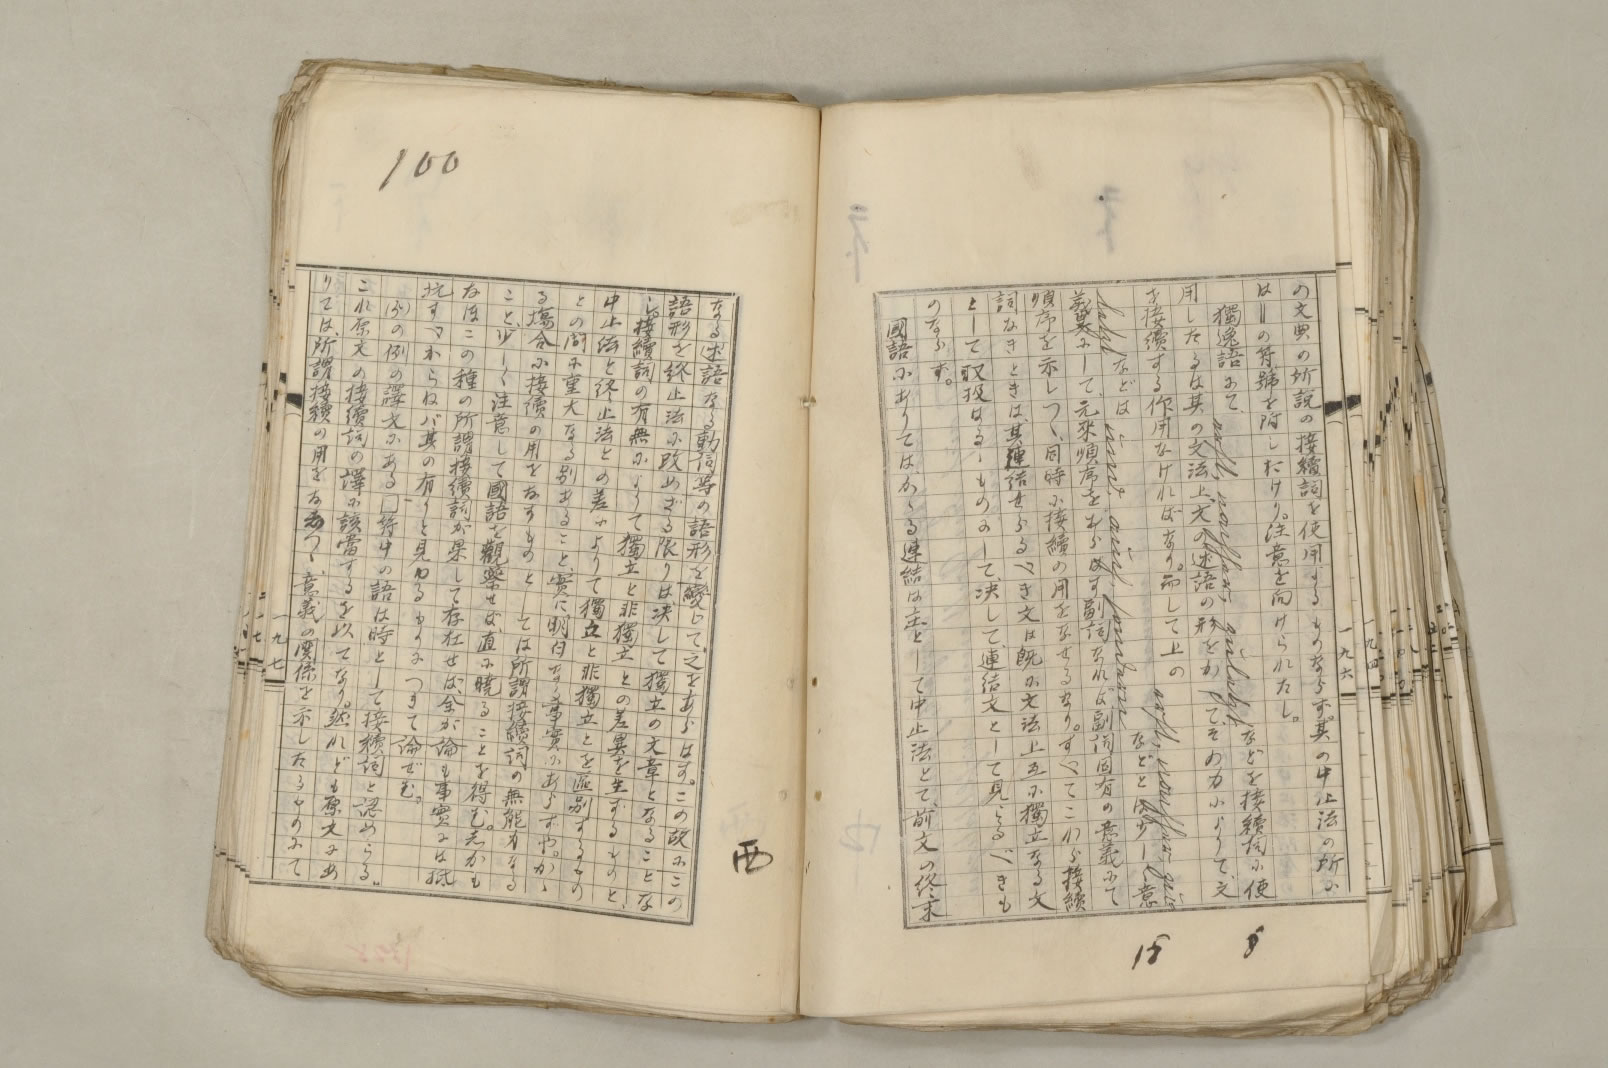 の文典の所説の接續詞を使用するものならず。其の中止法の所に
は‖の符號を附しおけり。注意を向けられたし。
獨逸語にて、 などを接續詞に使
用したるは其の文法上、文の述語の形をかへてその力によりて、文
を接續する作用なければなり。而して上の
などは などと少しく意
義にして、元來順序をあらはす副詞なれば副詞固有の意義にて
順序を示しつゝ、同時に接續の用をなせるなり。すべてこれら接續
詞なきときは、其連結せらるべき文は既に文法上互に獨立なる文
として取扱はるゝものにして決して連結文として見らるべきも
のならず。
國語にありてはかゝる連結は主として中止法とて、前文の終末
一九六
なる述語なる動詞等の語形を變じて、之をあらはす。この故にこの
語形を終止法に改めざる限りは決して獨立の文章となることな
し。接續詞の有無によりて獨立と非獨立との差異を生ずるものと、
中止法と終止法との差によりて獨立と非獨立とを區別するもの
との間に重大なる別あること、實に明白なる事實にあらずや。かゝ
る場合に接續の用をなすものとしては所謂接續詞の無能力なる
こと、少しく注意して國語を觀察せば直に曉ることを得む。しかも
なほこの種の所謂接續詞が果して存在せば、余が論も事實には抵
抗すべからねバ其の有りと見ゆるものにつきて論ぜむ。
の例の譯文にある 符中の語は時として接續詞と認めらる。
これ原文の接續詞の譯に該當するを以てなり。然れども原文にあ
りては、所謂接續の用をなしつゝ、意義の關係を示したるものにて
一九七
100
西
18
8